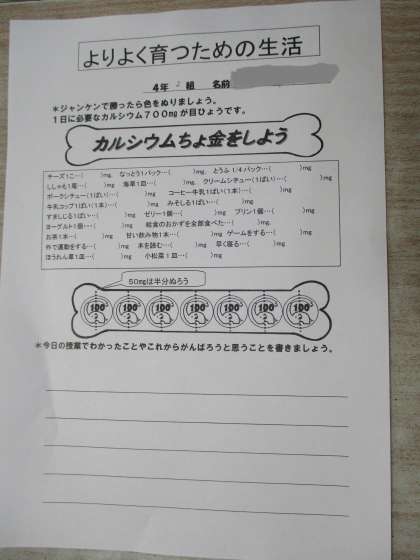 よりよく育つための生活
4年 2 組 名前
＊ジャンケンで勝ったら色をぬりましょう。
1日に必要なカルシウム700mgが目ひょうです。
カルシウムちょ金をしよう
チーズ1こ…( )mg、なっとう1パック…( )mg、とうふ 1/4 パック…( )mg
ししゃも1尾…( )mg 海草1皿…( )mg、クリームシチュー(1ぱい)…( )mg
ポークシチュー(1ぱい)…( )mg コーヒー牛乳1ぱい(1本)…( )mg
牛乳コップ1ぱい(1本)…( )mg みそしる1ぱい…( )mg
すましじる1ぱい…( )mg ゼリー1個…( )mg プリン1個…( )mg
ヨーグルト1個…( )mg 給食のおかずを全部食べた…( )mg
お茶1本…( )mg 甘い飲み物1本…( )mg ゲームをする…( )mg
外で運動をする…( )mg 本を読む…( )mg 早く寝る…( )mg
ほうれん草1皿…( )mg 小松菜1皿…( )mg
50mgは半分ぬろう
100 100 100 100 100 100 100
＊今日の授業でわかったことやこれからがんばろうと思うことを書きましょう。